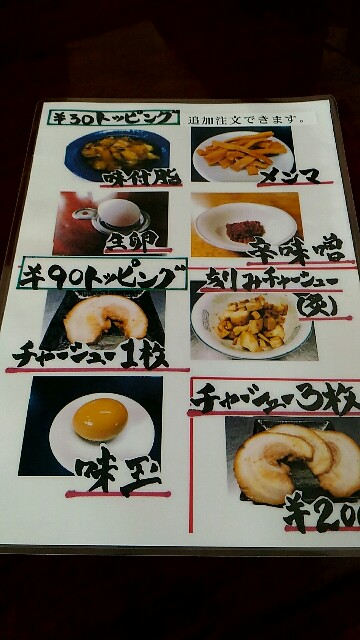 ¥30トッピング
追加注文できます。
味付脂
メンマ
生卵
辛味噌
¥90トッピング
刻みチャーシュー
(炙)
チャーシュー1枚
味玉
チャーシュー3枚
¥200